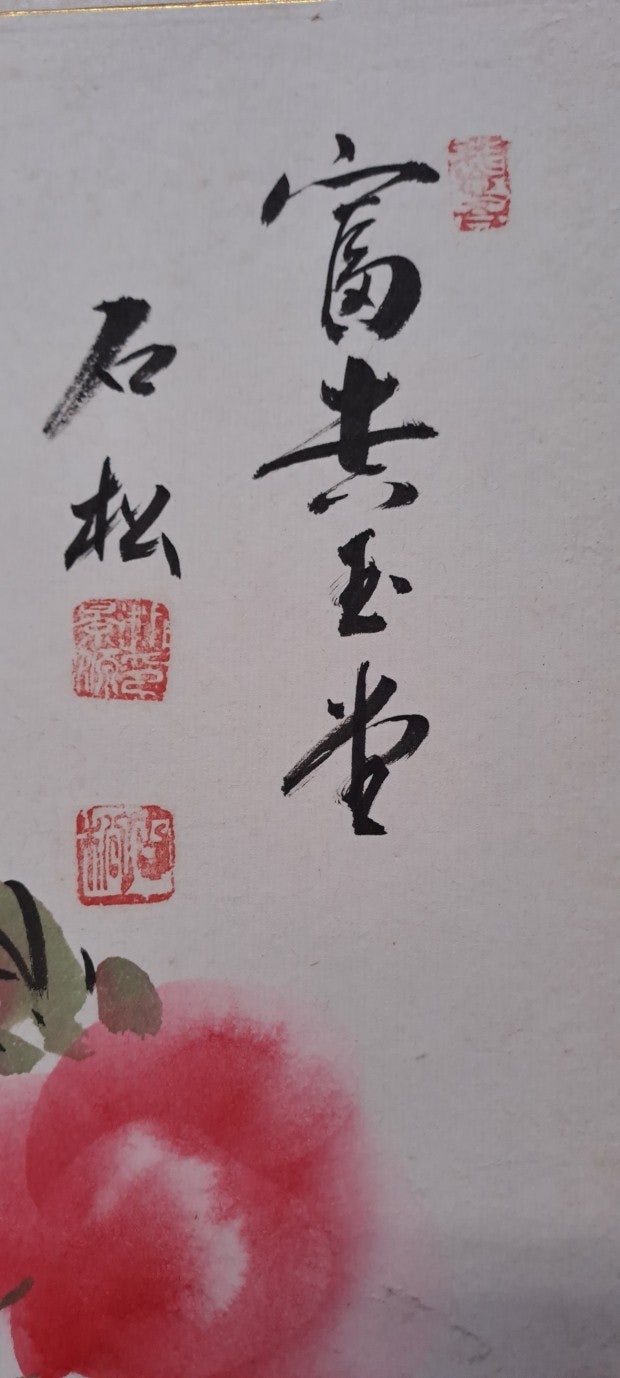 富貴玉堂
石松